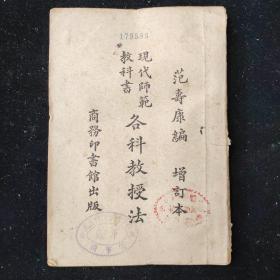 179585
范壽康編 增訂本
現代師範
教科書
各科教授法
商務印書館出版